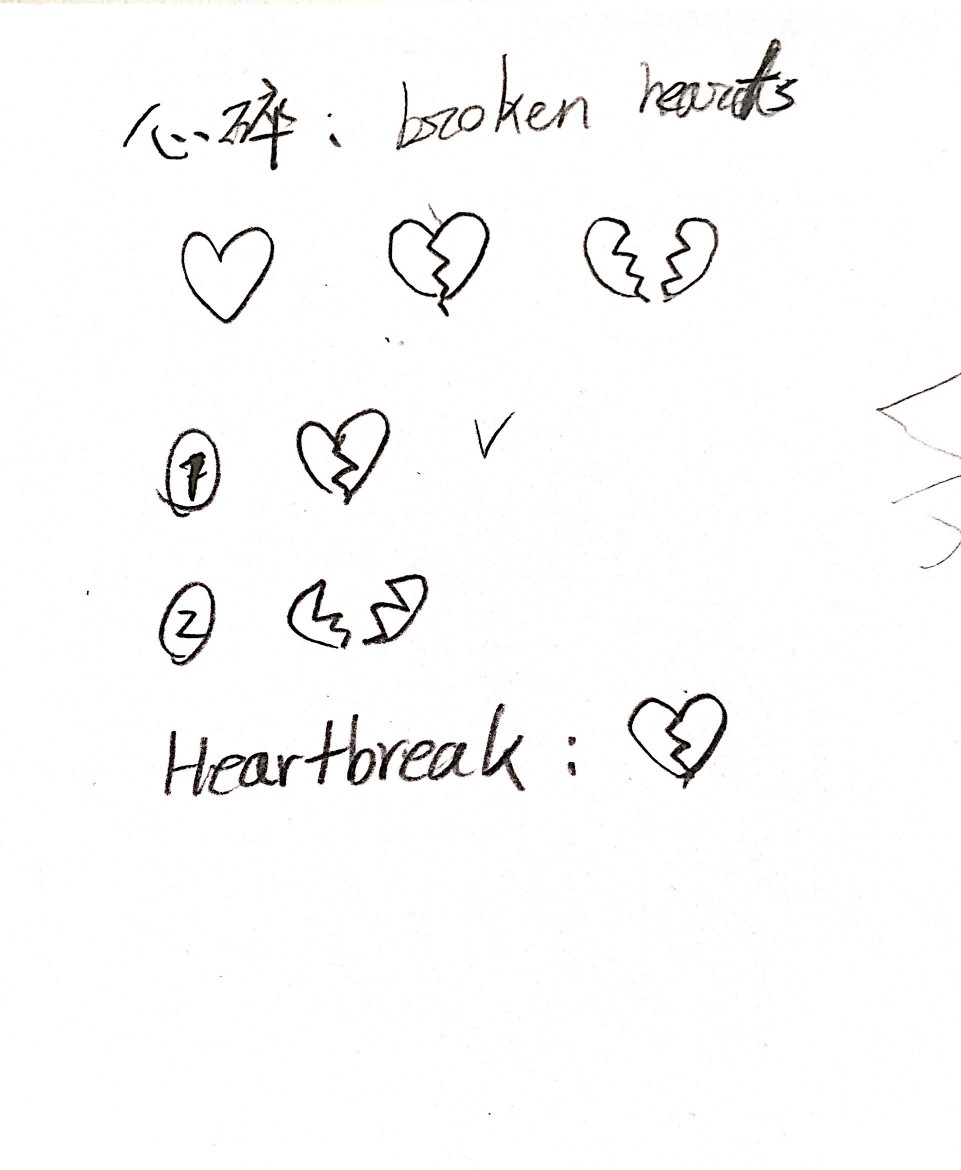 心碎: broken hearts
①
②
Heartbreak: